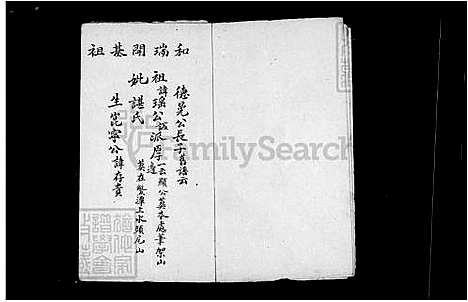 和瑞開基祖
德㒷公長子舊譜云
祖諱瑤公諡派厚一云顯公葬本處筆架山
妣諶氏 葬在鰲潭上水頭尾山
生 崑寧公諱存貴
FamilySearch